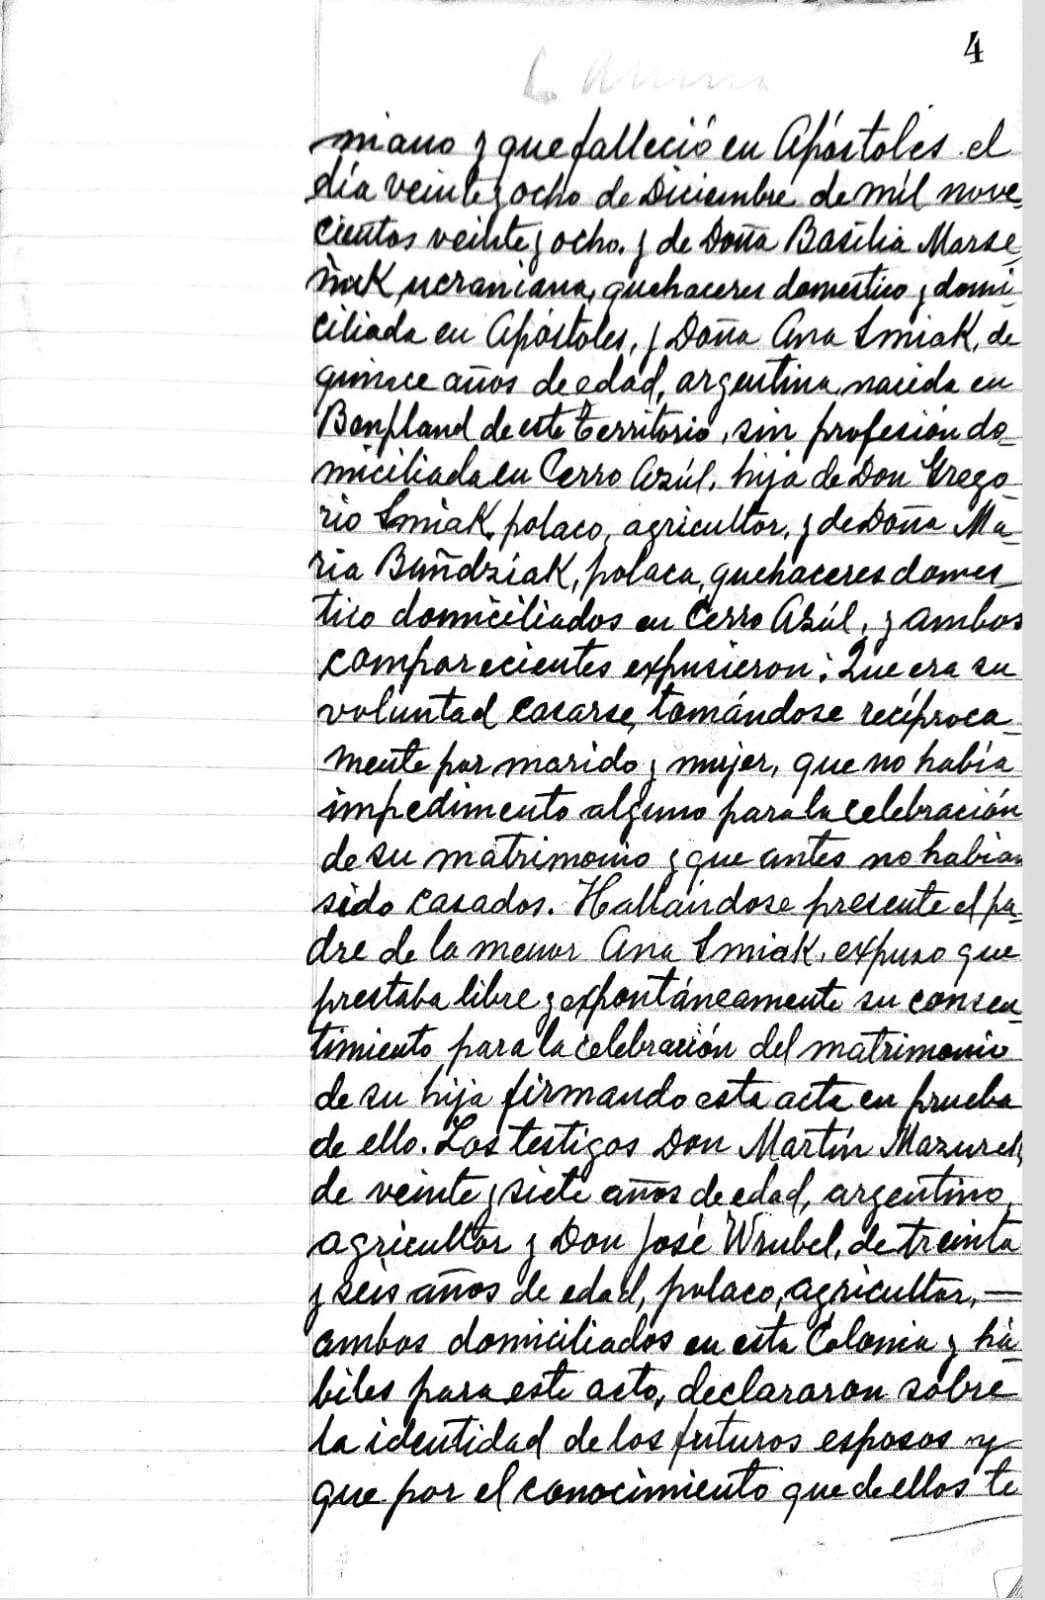 4
niano y que falleció en Apóstoles el
día veinte y ocho de Diciembre de mil nove_
cientos veinte y ocho. y de Doña Basilia Marse_
ñak, ucraniana, quehaceres domestico y domi_
ciliada en Apóstoles, y Doña Ana Smiak, de
quince años de edad, argentina, nacida en
Bonpland de este territorio, sin profesión do_
miciliada en Cerro Azúl, hija de Don Grego_
rio Smiak, polaco, agricultor, y de Doña Ma_
ria Bañdziak, polaca, quehaceres domes_
tico domiciliados en Cerro Azúl, y ambos
comparecientes expusieron: Que era su
voluntad casarse, tomándose recíproca_
mente por marido y mujer, que no había
impedimento alguno para la celebración
de su matrimonio y que antes no habian
sido casados. Hallándose presente el pa_
dre de la menor Ana Smiak, expuso que
prestaba libre y expontáneamente su consen_
timiento para la celebración del matrimonio
de su hija firmando esta acta en prueba
de ello. Los testigos Don Martín Mazurek,
de veinte y siete años de edad, argentino,
agricultor y Don José Wrubel, de treinta
y seis años de edad, polaco, agricultor, —
ambos domiciliados en esta Colonia y há_
biles para este acto, declararon sobre
la identidad de los futuros esposos y
que por el conocimiento que de ellos te